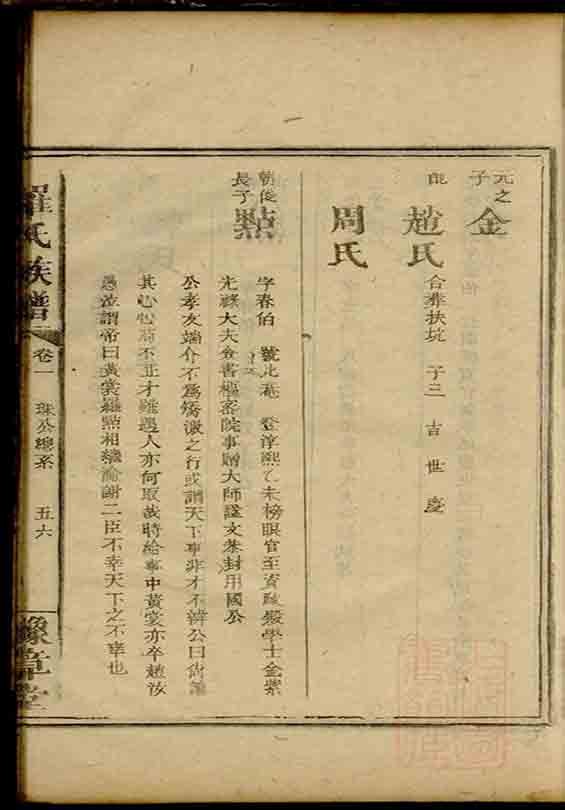 元之子
金
趙氏
合葬扶坑 子三 吉 世 慶
周氏
朝俊長子
點
字春伯 號此菴 登淳熙乙未榜眼官至資政殿學士金紫
光祿大夫僉書樞密院事贈大師諡文恭封用國公
公孝友端介不爲矯激之行或謂天下事非才不辨公曰尚論
其心心苟不正才雖過人亦何取哉時給事中黃裳亦卒趙汝
愚泣謂帝曰黃裳羅點相繼淪謝二臣不幸天下之不幸也
羅氏族譜 卷一 珠公總系 五六 豫章堂